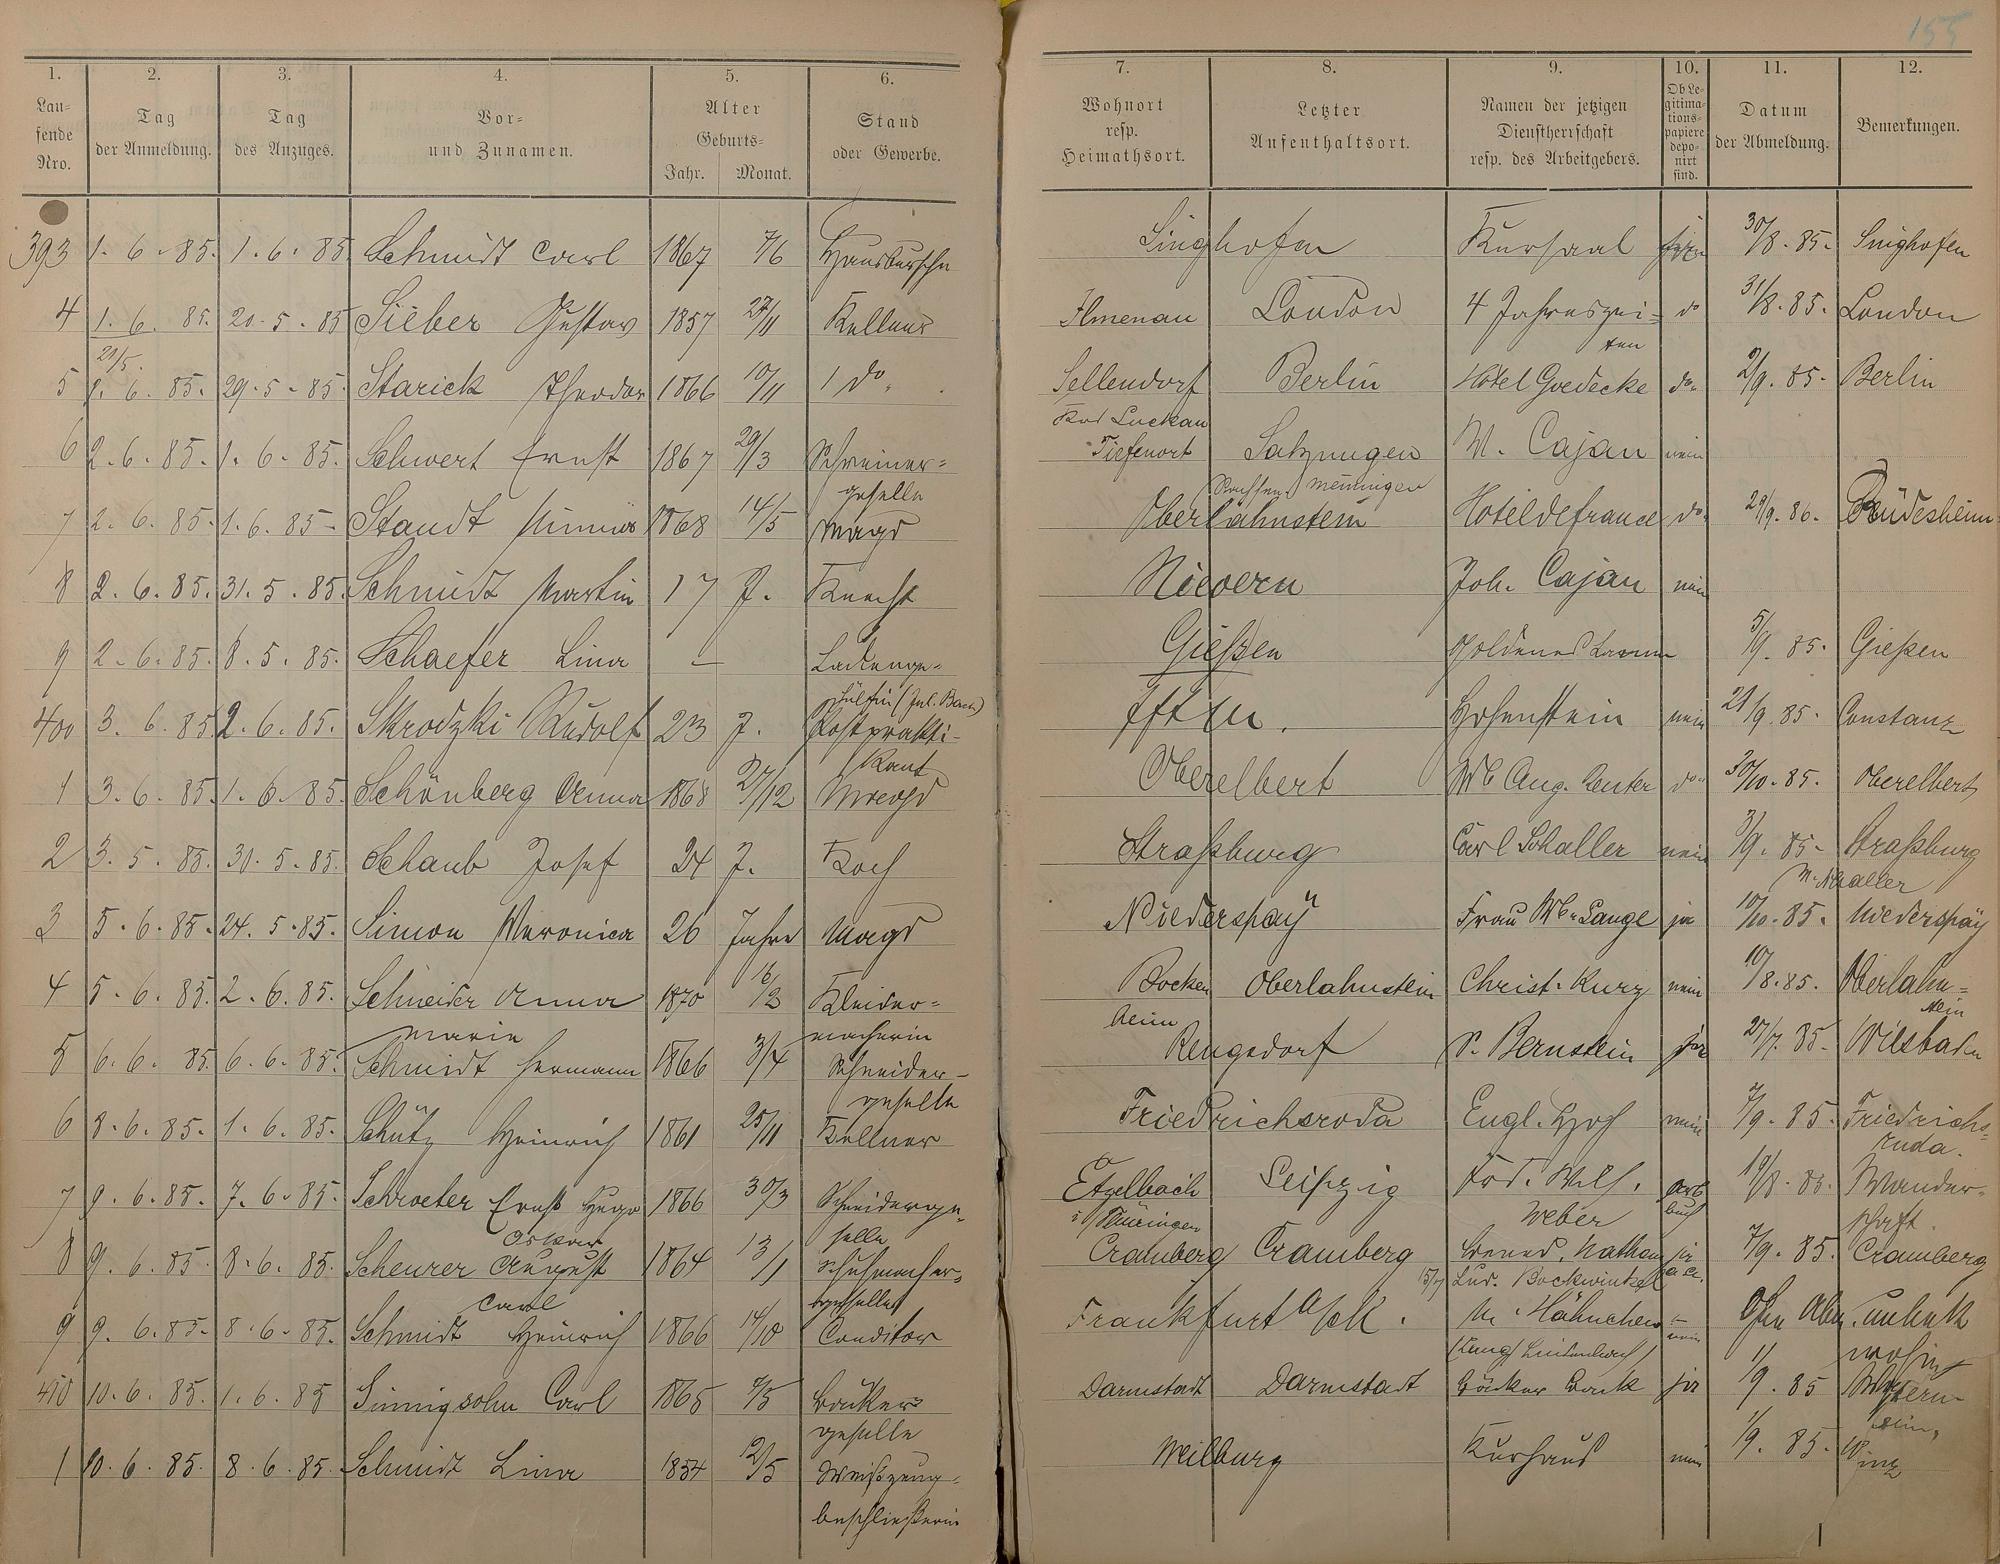 155
1. 2. 3. 4. 5. 6. 7. 8. 9. 10. 11. 12.
Laufende Nro. Tag der Anmeldung. Tag des Anzuges. Vor- und Zunamen. Alter Geburts- Jahr. Monat. Stand oder Gewerbe. Wohnort resp. Heimathsort. Letzter Aufenthaltsort. Namen der jetzigen Dienstherrschaft resp. des Arbeitgebers. Ob Legitimationspapiere deponirt sind. Datum der Abmeldung. Bemerkungen.
393 1. 6. 85. 1. 6. 85 Schmidt Carl 1867 7/6 Hausbursche Singhofen Kursaal 30/8. 85. Singhofen
4 1. 6. 85. 20. 5. 85 Sieber Gustav 1857 27/11 Kellner Ilmenau London 4 Jahreszei= do 31/8. 85. London
29/5. ten
5 1. 6. 85. 29. 5. 85. Starick Theodor 1866 10/11 do. Sellendorf Berlin Hotel Goedecke do. 2/9. 85. Berlin
Luckau
6 2. 6. 85. 1. 6. 85. Schwert Ernst 1867 29/3 Schreiner= Tiefenort Salzungen W. Cajan nein
geselle Sachsen Meiningen
7 2. 6. 85. 1. 6. 85. Staudt 1868 14/5 Magd Oberlahnstein Hotel de france do. 29/9. 86. Rüdesheim
8 2. 6. 85. 31. 5. 85. Schmidt Martin 17 J. Knecht Nievern Joh. Cajan nein
9 2. 6. 85. 8. 5. 85. Schaefer Lina — Ladenge= Gießen Goldenes Lamm 5/9. 85. Gießen
hülfin (Jul. Bach)
400 3. 6. 85. 2. 6. 85. Skrodzki Rudolf 23 J. Postprakti- Hohenstein nein 21/9. 85. Constanz
kant
1 3. 6. 85. 1. 6. 85. Schönberg Anna 1868 27/12 Magd Oberelbert Wb Aug. do. 30/10. 85. Oberelbert
2 3. 5. 85. 30. 5. 85. Schaub Josef 24 J. Koch Straßburg Carl Schaller nein 3/9. 85. Straßburg
3 5. 6. 85. 24. 5. 85. Simon Veronica 26 Jahre Magd Niederspay Frau Wb. Lange ja 10/10. 85. Niederspay
4 5. 6. 85. 2. 6. 85. Schneider Anna 1870 16/2 Kleider= Bocken Oberlahnstein Christ. Kurz nein 10/8. 85. Oberlahn=
Marie macherin heim stein
5 6. 6. 85. 6. 6. 85. Schmidt Hermann 1866 3/4 Schneider- Rengsdorf S. Bernstein ja 27/7. 85. Wiesbaden
geselle
6 8. 6. 85. 1. 6. 85. Schütz Heinrich 1861 25/11 Kellner Friedrichsroda Engl. Hof nein 7/9. 85. Friedrichs=
roda.
7 9. 6. 85. 7. 6. 85. Schroeter Ernst Hugo 1866 30/3 Schneiderge= Etzelbach Leipzig Frd. Wilh. Arb 19/8. 85. Wander=
Oskar selle i/Thüringen Weber buch schaft.
8 9. 6. 85. 8. 6. 85. Scheurer August 1864 13/1 Schuhmacher= Cramberg Cramberg Nathan ja 7/9. 85. Cramberg
Carl geselle 15/7 Lud. Bockwinkel
9 9. 6. 85. 8. 6. 85. Schmidt Heinrich 1866 14/10 Conditor Frankfurt a/M. Hähnchen nein Ohne Abm. unbek
wohin
410 10. 6. 85. 1. 6. 85 Sinnigsohn Carl 1865 Bäcker= Darmstadt Darmstadt Bäcker Bock ja 1/9. 85
geselle
1 10. 6. 85. 8. 6. 85. Schmidt Lina 1854 12/5 Weißzeug= Weilburg Kurhaus nein 1/9. 85.
beschließerin